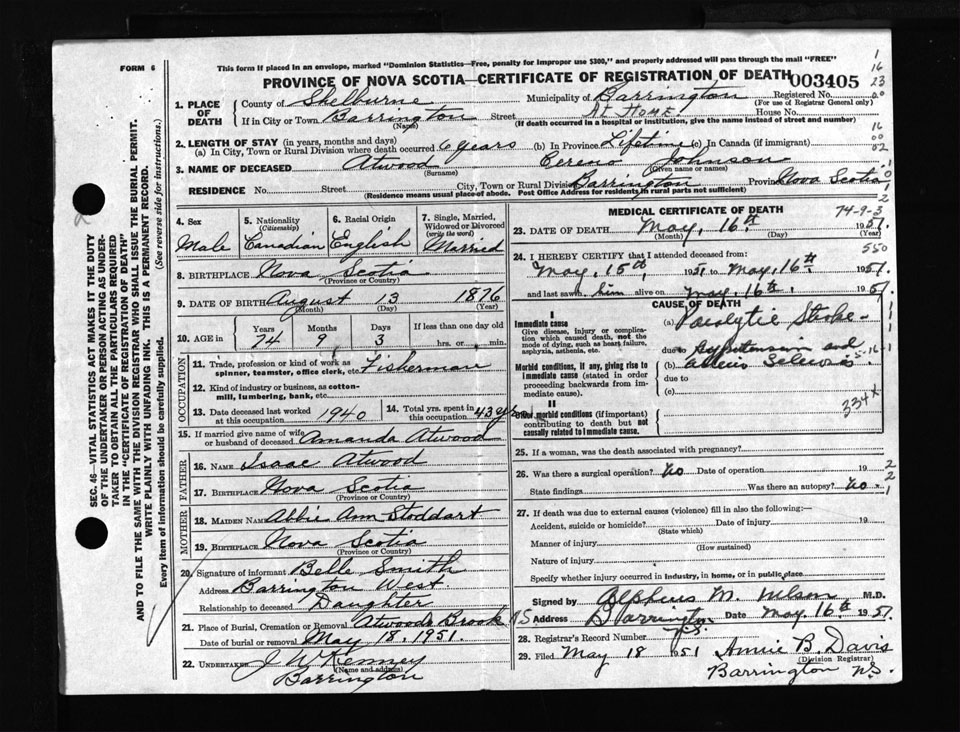 FORM 6
This form if placed in an envelope, marked "Dominion Statistics—Free, penalty for improper use $300," and properly addressed will pass through the mail "FREE"
PROVINCE OF NOVA SCOTIA—CERTIFICATE OF REGISTRATION OF DEATH 003405
1. PLACE OF DEATH
County of Shelburne Municipality of Barrington Registered No.
(For use of Registrar General only)
If in City or Town Barrington Street At Home. House No.
(Name) (If death occurred in a hospital or institution, give the name instead of street and number)
2. LENGTH OF STAY (in years, months and days)
(a) In City, Town or Rural Division where death occurred 6 years (b) In Province Lifetime (c) In Canada (if immigrant)
3. NAME OF DECEASED Atwood Cereno Johnson
(Surname) (Given name or names)
RESIDENCE No. Street City, Town or Rural Division Barrington Province Nova Scotia
(Residence means usual place of abode. Post Office Address for residents in rural parts not sufficient)
4. Sex Male
5. Nationality (Citizenship) Canadian
6. Racial Origin English
7. Single, Married, Widowed or Divorced (write the word) Married
8. BIRTHPLACE Nova Scotia
(Province or Country)
9. DATE OF BIRTH August 13 1876
(Month) (Day) (Year)
10. AGE in Years Months Days If less than one day old
74 9 3 hrs. or min.
OCCUPATION
11. Trade, profession or kind of work as spinner, teamster, office clerk, etc. Fisherman
12. Kind of industry or business, as cotton-mill, lumbering, bank, etc.
13. Date deceased last worked at this occupation 1940
14. Total yrs. spent in this occupation 43 yrs
15. If married give name of wife or husband of deceased Amanda Atwood
FATHER
16. NAME Isaac Atwood
17. BIRTHPLACE Nova Scotia
(Province or Country)
MOTHER
18. MAIDEN NAME Abbie Ann Stoddart
19. BIRTHPLACE Nova Scotia
(Province or Country)
20. Signature of informant Belle Smith
Address Barrington West
Relationship to deceased Daughter
21. Place of Burial, Cremation or Removal Atwoods Brook NS
Date of burial or removal May 18, 1951.
22. UNDERTAKER J W Kenney
(Name and address)
Barrington
MEDICAL CERTIFICATE OF DEATH 74-9-3
23. DATE OF DEATH May, 16th 1951.
(Month) (Day) (Year)
24. I HEREBY CERTIFY that I attended deceased from: 550
May, 15th, 1951 to May, 16th 1951.
and last saw him alive on May, 16th, 1951
CAUSE OF DEATH
I
Immediate cause
Give disease, injury or complication which caused death, not the mode of dying, such as heart failure, asphyxia, asthenia, etc.
(a) Paralytic Stroke
due to Hypertension and
Morbid conditions, if any, giving rise to immediate cause (stated in order proceeding backwards from immediate cause).
(b)
due to
(c)
334x
II
Other morbid conditions (if important) contributing to death but not causally related to immediate cause.
25. If a woman, was the death associated with pregnancy?
26. Was there a surgical operation? no Date of operation 19
State findings Was there an autopsy? no
27. If death was due to external causes (violence) fill in also the following:—
Accident, suicide or homicide? Date of injury 19
(State which)
Manner of injury
(How sustained)
Nature of injury
Specify whether injury occurred in industry, in home, or in public place
Signed by Alphius M. Wilson M.D.
Address Barrington N.S. Date May, 16th 1951
28. Registrar's Record Number
29. Filed May 18 1951 Annie B. Davis
(Division Registrar)
Barrington N.S.
SEC. 46—VITAL STATISTICS ACT MAKES IT THE DUTY
OF THE UNDERTAKER OR PERSON ACTING AS UNDER-
TAKER TO OBTAIN ALL THE PARTICULARS REQUIRED
IN THE "CERTIFICATE OF REGISTRATION OF DEATH"
AND TO FILE THE SAME WITH THE DIVISION REGISTRAR WHO SHALL ISSUE THE BURIAL PERMIT.
WRITE PLAINLY WITH UNFADING INK. THIS IS A PERMANENT RECORD.
Every item of information should be carefully supplied. (See reverse side for instructions.)